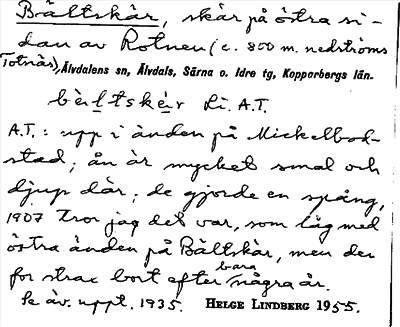 Bältskär, skär på östra si-
dan av Rotnen (c. 800 m. nedströms
Totnäs), Älvdalens sn, Älvdals, Särna o. Idre tg, Kopparbergs län.
bèḷtskèr Li. A.T.
A.T.: upp i änden på Mickelbod-
stad; ån är mycket smal och
djup där; de gjorde en spång,
1907 tror jag det var, som låg med
östra änden på Bältskär, men den
for strax bort efter bara några år.
Se äv. uppt. 1935. HELGE LINDBERG 1955.